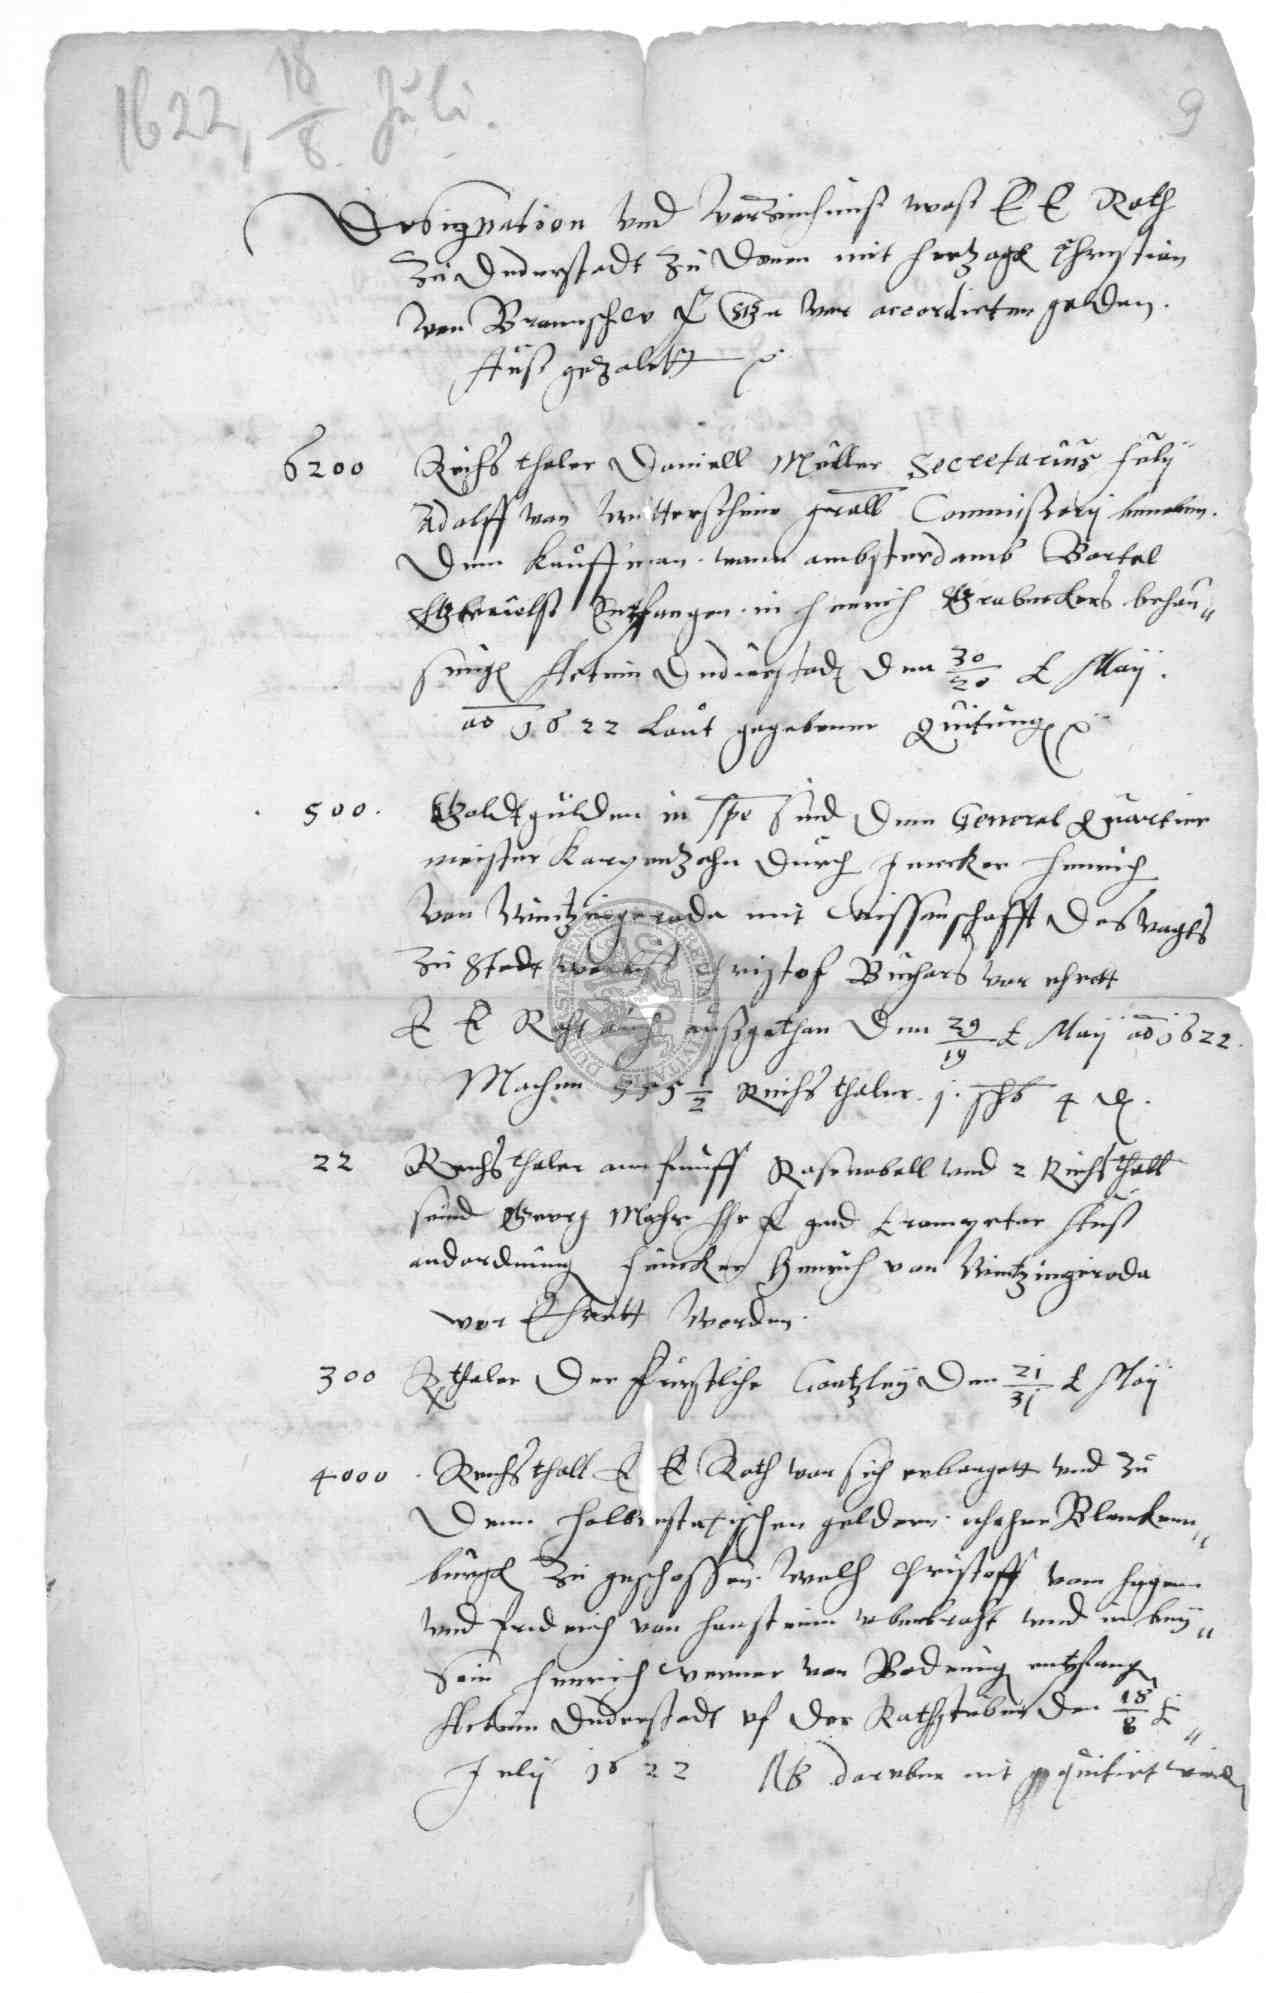 1622, 18/8. Juli.
9
Designation vnd Verzeichnuß waß E E Rath
Zu Duderstadt Zu denen mit Hertzogk Christian
von Braunschw accordirten geldern
Auß gezalett
6200 Reichsthaler Daniell Müller Secretarius July
Adolff von Commissarij beneben
Dem Kauffman vonn ambsterdamb Bartel
Entfangen in Henrich Grabeckers behau„
sung Actum Duderstadt den 30/20 Maij
ao 1622 Laut gegebener Quitung
500. Goldtgülden in spe sind dem General Quartier
meister Karpenzohn durch Juncker Henrich
Von Wintzingeroda mit Wissenschafft des Vagts
Zu Stadt Christof Buchars vor ehrett
E E Raht außgethan den 29/19 Maij ao 1622.
Machen 555 1/2 Reichsthaler j. schl 4
22 Reichsthaler am funff Rosenobell vnd 2 Reichsthall
seind Georg Mohr Trompeter Auß
andordnung Juncker Henrich von Wintzingeroda
vor Ehrett Worden
300 Rthaler Der Furstliche Cantzley Den 21/31 Maij
4000. Reichsthall E E Rath von sich erborgett vnd Zu
Denn Halberstatischen geldern Blancken„
burgk Zu geschossen. Welch Christoff vom Hagen
vnd Fridrich von Hanstein vberbracht vnd in bey„
Sein Henrich Werner von Bodeung entfang
Actum Duderstadt vf der Rathstuben Den 18/8
July 1622 NB daruber nit quitirt